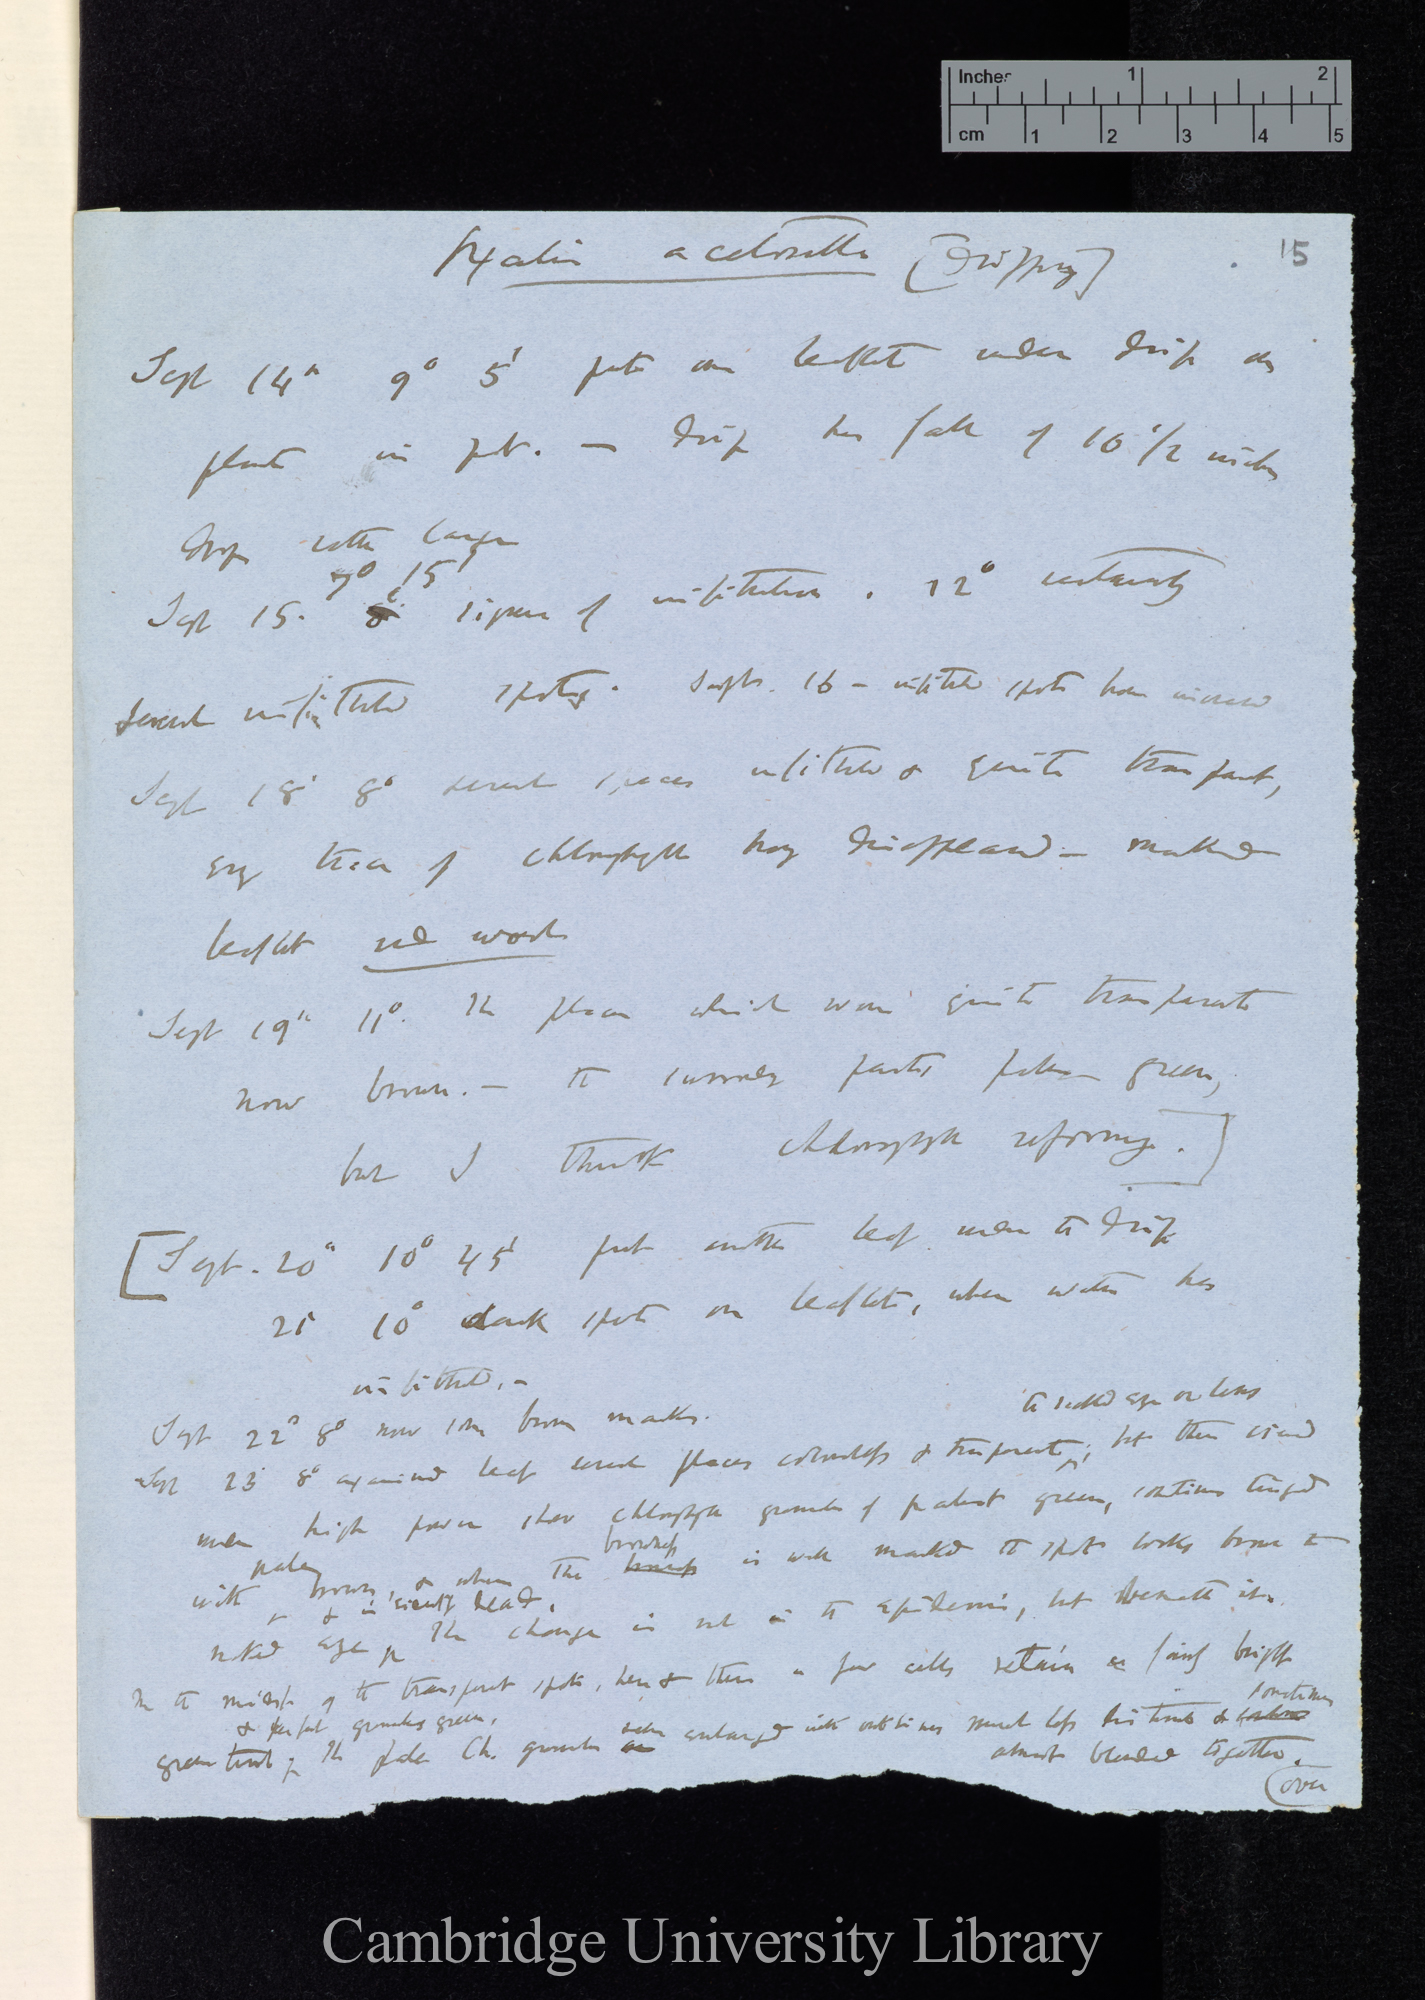 Inches 1 2
cm 1 2 3 4 5
15
Oxalis acetosella [Dripping]
Sept 14th 9° 5' put one leaflet under drip on
plant in pot. — drip has fall of 10 1/2 inches
drops rather large
7° 15'
Sept 15. signs of infiltration. 12° certainly
several infiltrated spots. Sept. 16 — infiltrated spots have increased
Sept 18' 8° several spaces infiltrated & quite transpart,
every trace of chlorophyll having disappeared — marked
leaflet red wool
Sept 19th 11°. The places which were quite transparent
now brown. — the surrounding parts pale green,
but I think chlorophyll reforming.]
[Sept. 20th 10° 45' put another leaf under the drip
21 10° dark spots on leaflets, where water has
infiltrated. —
Sept 22d 8° now some brown marks.
to naked eye or lens
Sept 23 8° examined leaf several places colourless & transparent; but these viewed
under high power show chlorophyll granules of palest green, sometimes tinged
brownish
with pale brown, & where the is well marked the spots looks brown to
& is evidently dead.
naked eye The change is not in the epidermis, but beneath it.
In the midst of the transparent spots, here & there a few cells retain fairly bright
& perfect granules green.
green tint; The pale Ch. granules seem enlarged with outlines much less distinct & sometimes
almost blended together.
(over
Cambridge University Library